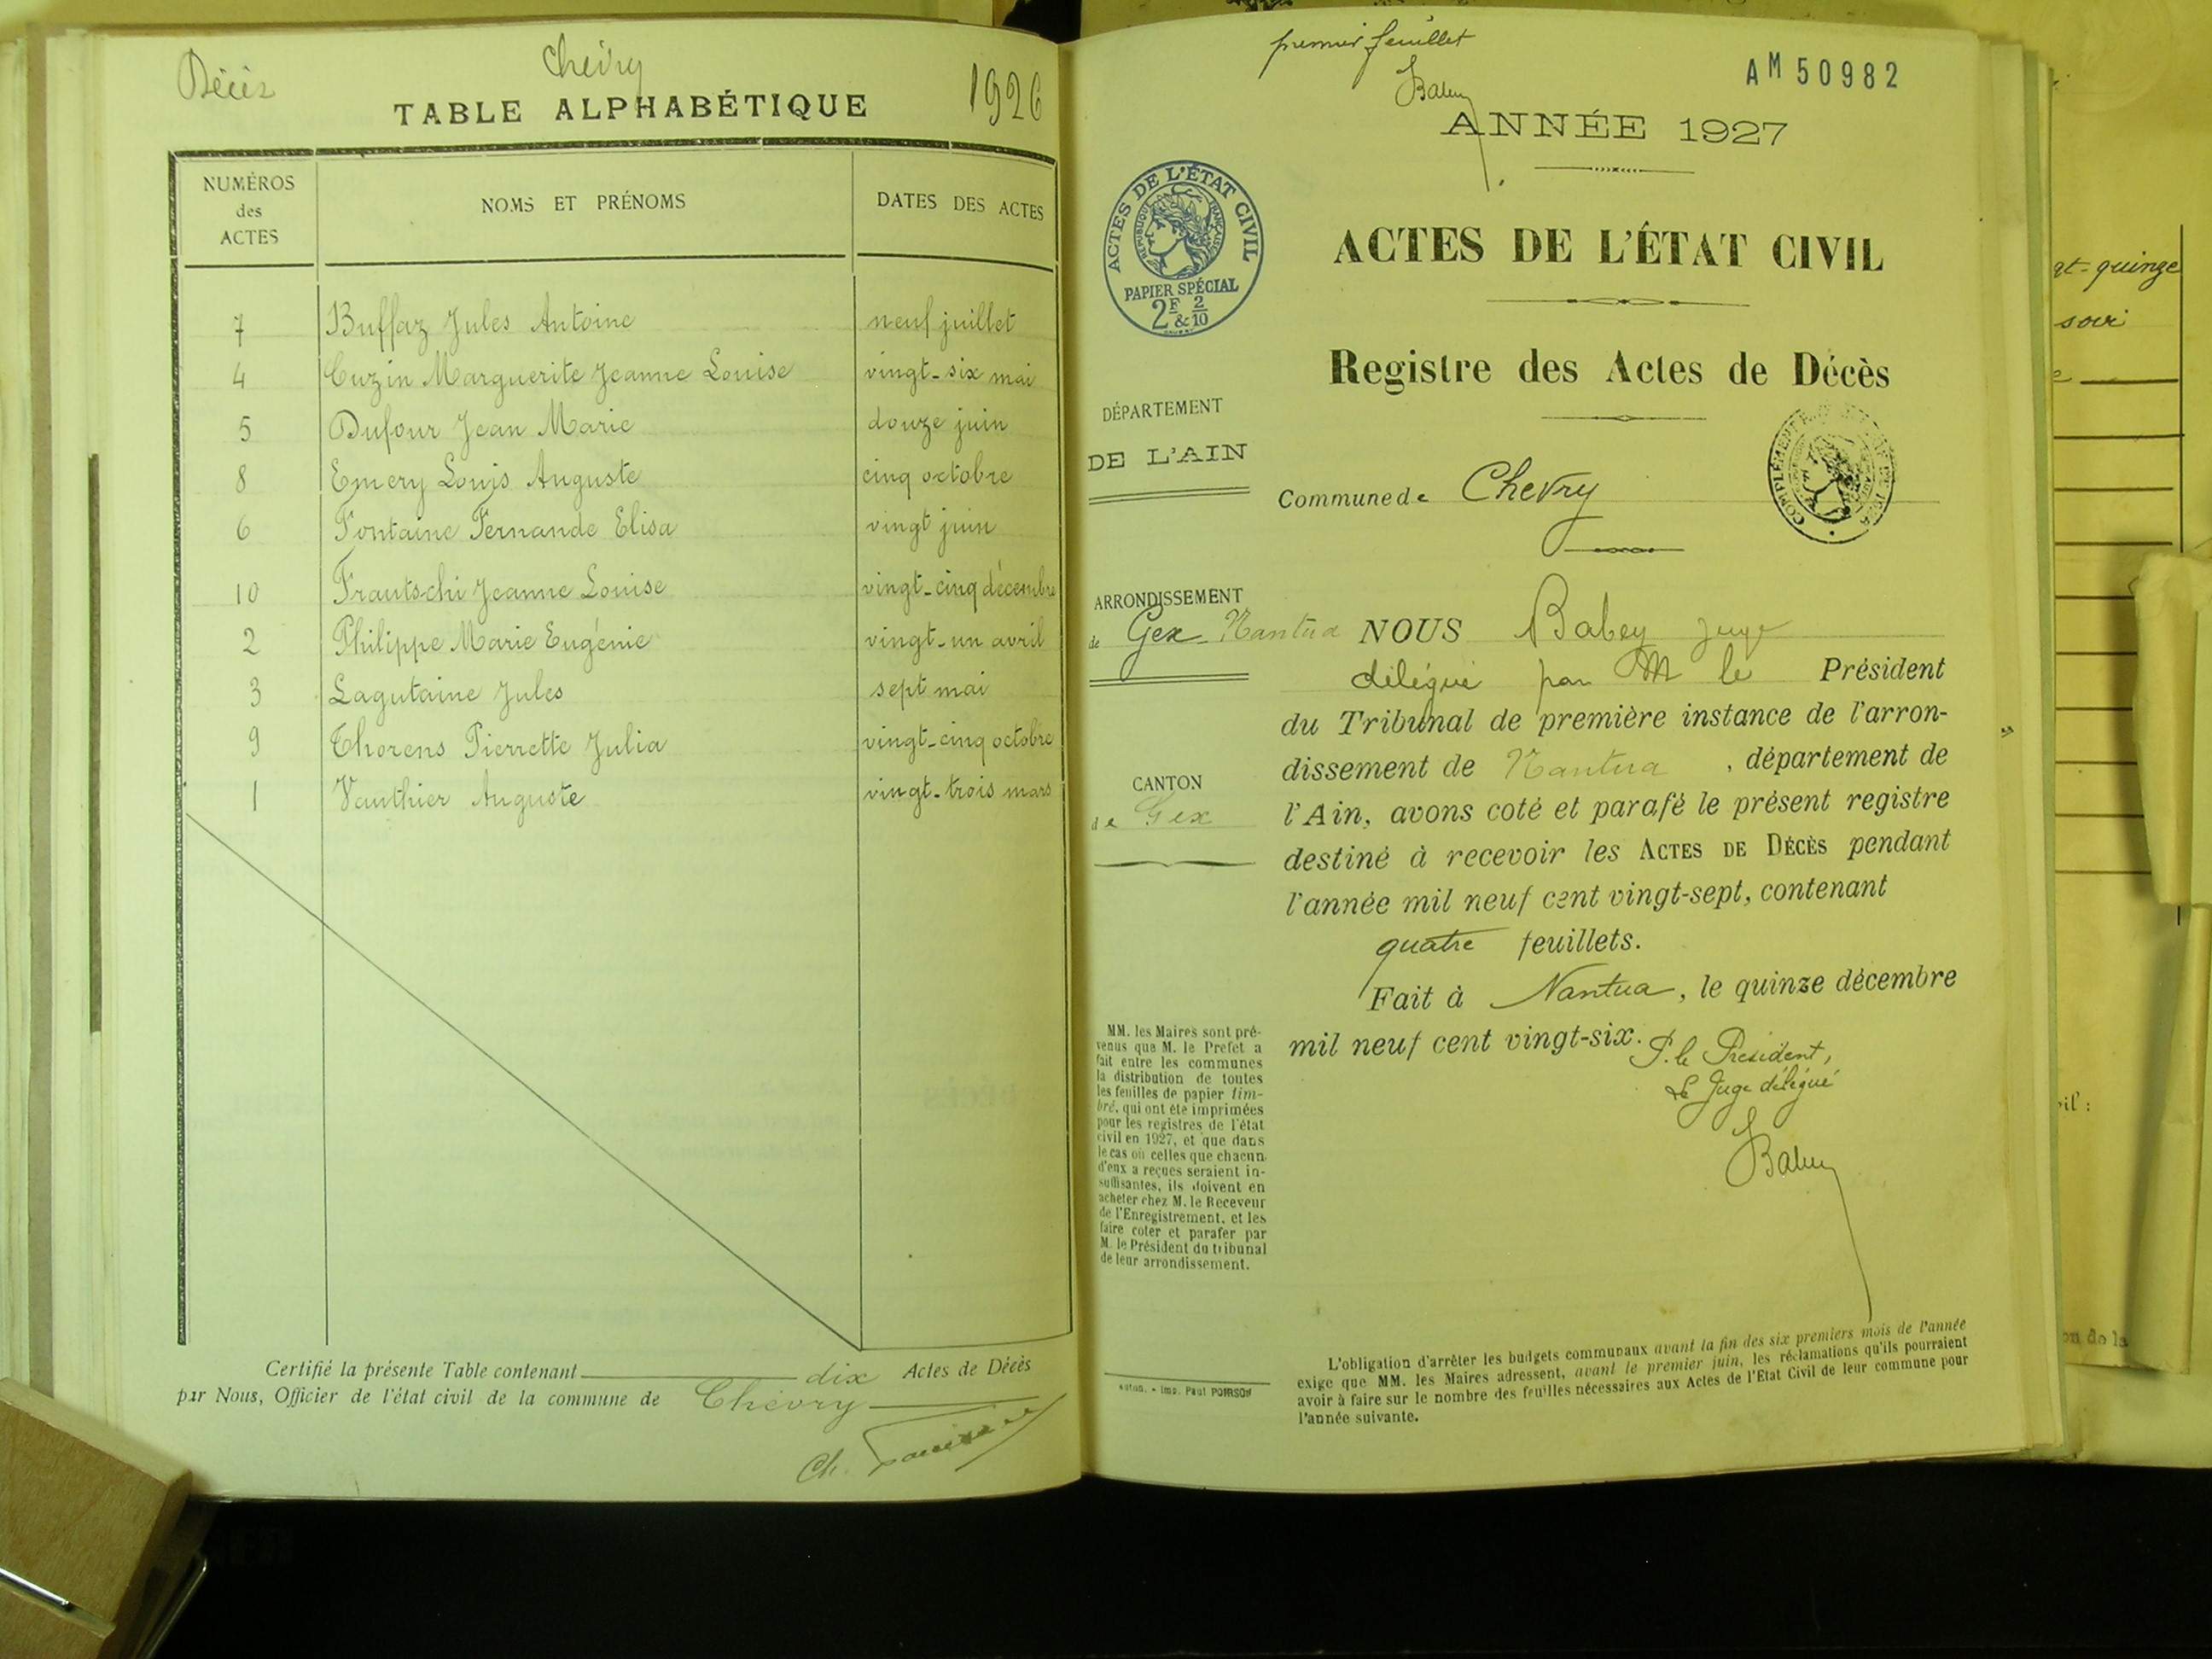 Décès
Chevry
1926
TABLE ALPHABÉTIQUE
NUMÉROS
des
ACTES
NOMS ET PRÉNOMS
DATES DES ACTES
7 Buffaz Jules Antoine neuf juillet
4 Cuzin Marguerite Jeanne Louise vingt-six mai
5 Dufour Jean Marie douze juin
8 Emery Louis Auguste cinq octobre
6 Fontaine Fernande Elisa vingt juin
10 Frautschi Jeanne Louise vingt-cinq décembre
2 Philippe Marie Eugénie vingt-un avril
3 Lagutaine Jules sept mai
9 Thorens Pierrette Julia vingt-cinq octobre
1 Vauthier Auguste vingt-trois mars
Certifié la présente Table contenant dix Actes de Décès
par Nous, Officier de l'état civil de la commune de Chevry
Ch.
premier feuillet
Babey
AM 50982
ANNÉE 1927
ACTES DE L'ÉTAT CIVIL
RÉPUBLIQUE FRANÇAISE
PAPIER SPÉCIAL
2F & 2/10
ACTES DE L'ÉTAT CIVIL
Registre des Actes de Décès
DÉPARTEMENT
DE L'AIN
Commune de Chevry
ARRONDISSEMENT
de Gex Nantua
CANTON
de Gex
NOUS Babey juge
délégué par M le Président
du Tribunal de première instance de l'arron-
dissement de Nantua, département de
l'Ain, avons coté et parafé le présent registre
destiné à recevoir les ACTES DE DÉCÈS pendant
l'année mil neuf cent vingt-sept, contenant
quatre feuillets.
Fait à Nantua, le quinze décembre
mil neuf cent vingt-six.
P. le Président,
Le Juge délégué
Babey
MM. les Maires sont pré-
venus que M. le Préfet a
fait entre les communes
la distribution de toutes
les feuilles de papier tim-
bré, qui ont été imprimées
pour les registres de l'état
civil en 1927, et que dans
le cas où celles que chacun
d'eux a reçues seraient in-
suffisantes, ils doivent en
acheter chez M. le Receveur
de l'Enregistrement, et les
faire coter et parafer par
M. le Président du tribunal
de leur arrondissement.
Imp. Paul POIRSON
L'obligation d'arrêter les budgets communaux avant la fin des six premiers mois de l'année
exige que MM. les Maires adressent, avant le premier juin, les réclamations qu'ils pourraient
avoir à faire sur le nombre des feuilles nécessaires aux Actes de l'Etat Civil de leur commune pour
l'année suivante.
gt-quinze
soir